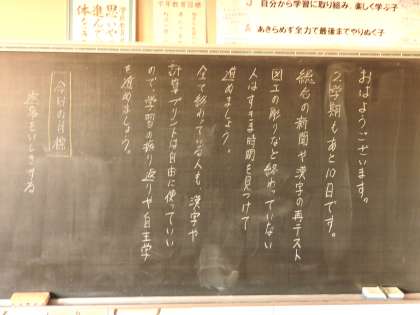 自分から学習に取り組み、楽しく学ぶ子
あきらめず全力で最後までやりぬく子
おはようございます。
2学期もあと10日です。
総合の新聞や漢字の再テスト
図工の彫りなど終わっていない
人はすきま時間を見つけて
進めましょう。
全て終わっている人も、漢字や
計算プリントは自由に使っていい
ので、学習の振り返りや自主学
を進めましょう。
今日の目標
をいしきする